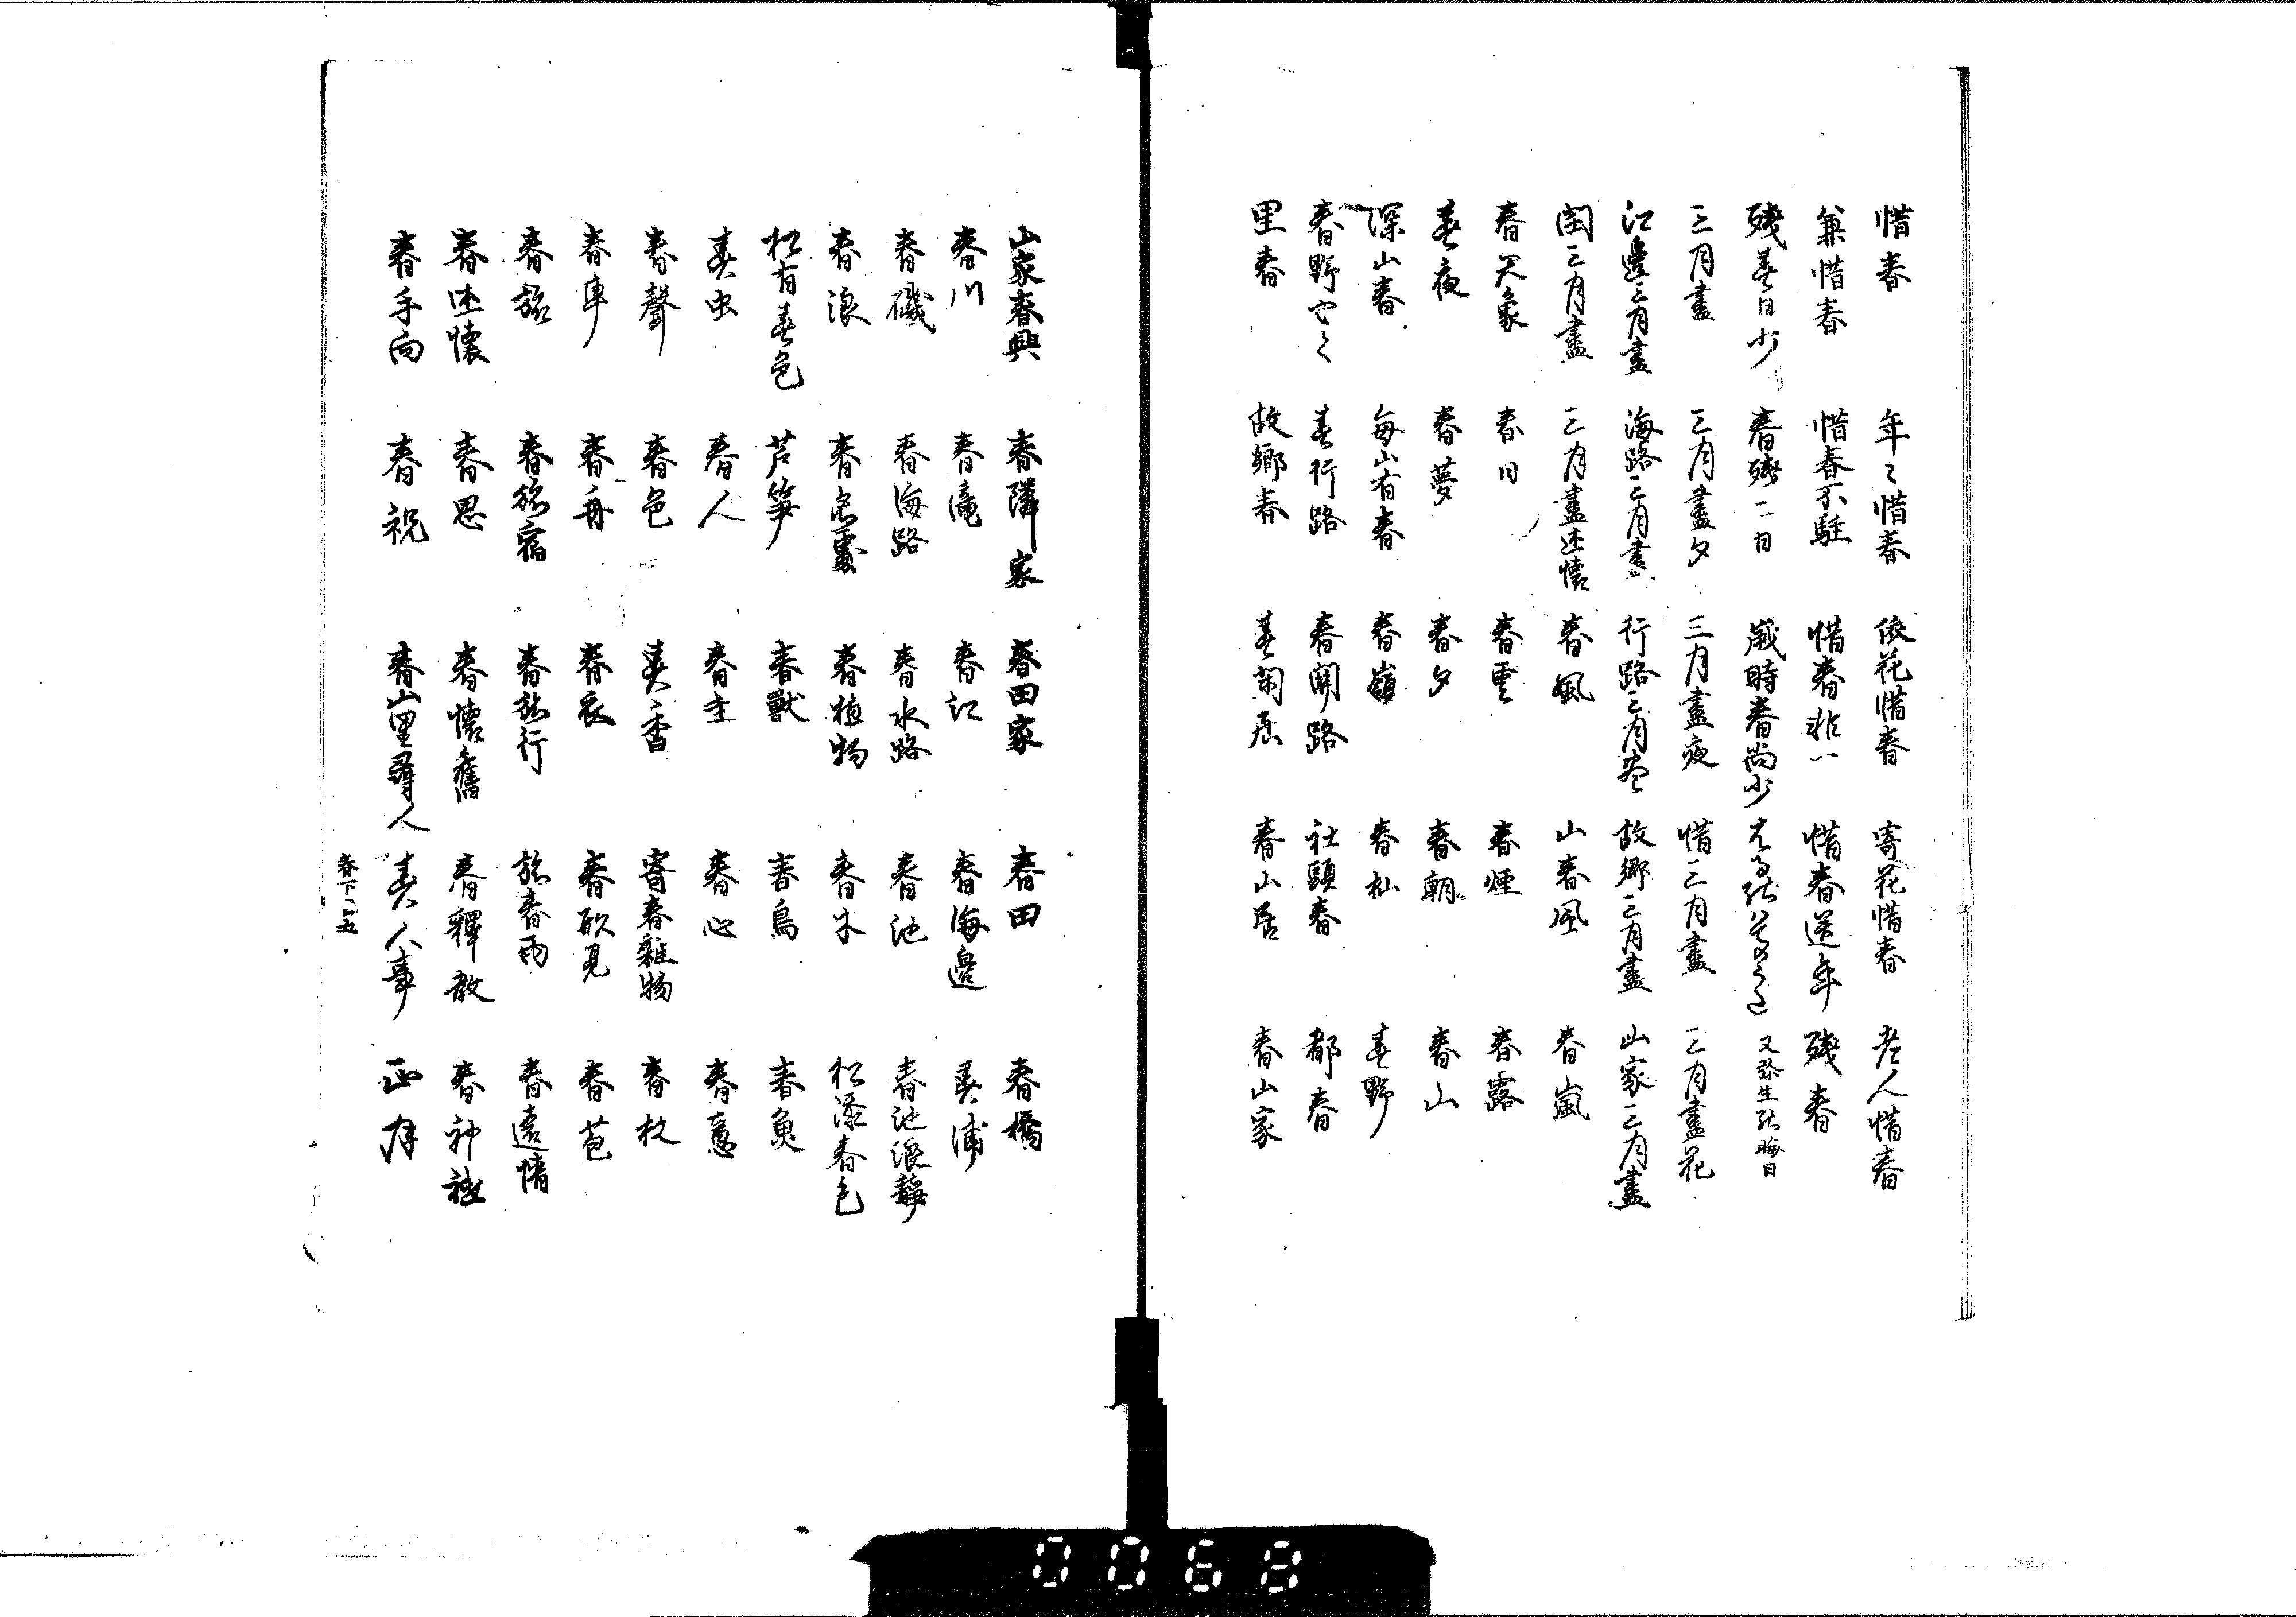 惜春 年〻惜春 依花惜春 寄花惜春 老人惜春
兼惜春 惜春不駐 惜春非一 惜春送年 残春
残春日少 春残二日 歳時春尚少 又弥生の晦日
三月盡 三月盡夕 三月盡夜 惜三月盡 三月盡花
江邊三月盡 海路三月盡 行路三月尽 故郷三月盡 山家三月盡
閏三月盡 三月盡述懐 春風 山春風 春嵐
春天象 春日 春雲 春煙 春露
春夜 春夢 春夕 春朝 春山
深山春 毎山有春 春嶺 春杣 春野
春野 春行路 春關路 社頭春 都春
里春 故郷春 春閑居 春山居 春山家
山家春興 春隣家 春田家 春田 春橋
春川 春滝 春江 春海邊 春浦
春磯 春海路 春水路 春池 春池浪静
春浪 春名所 春植物 春木 松添春色
松有春色 芦笋 春獣 春鳥 春魚
春虫 春人 春主 春心 春意
春聲 春色 春香 寄春雑物 春枕
春車 春舟 春衣 春眺見 春苞
春旅 春旅宿 春旅行 旅春雨 春遠情
春述懐 春思 春懐舊 春釋教 春神祇
春手向 春祝 春山里尋人 春人事 正月
春下二五
0068